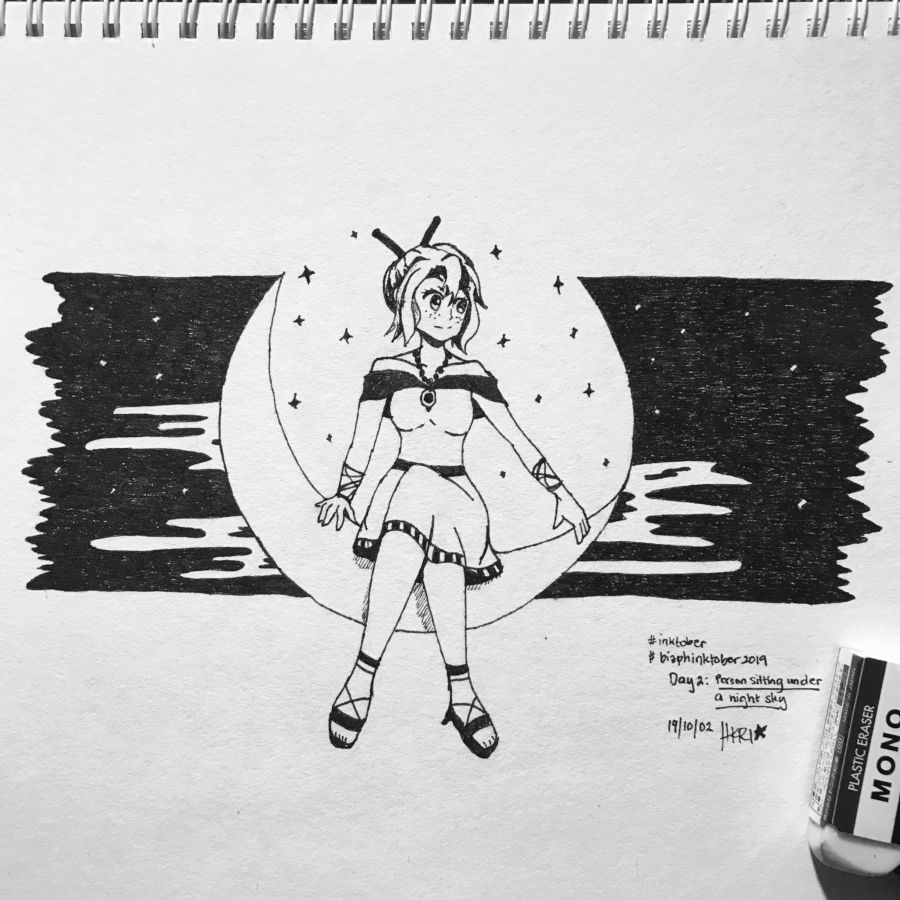 #inktober
#bizphinktober2019
Day 2: Person sitting under
a night sky
19/10/02 HKRI
PLASTIC ERASER
MONO